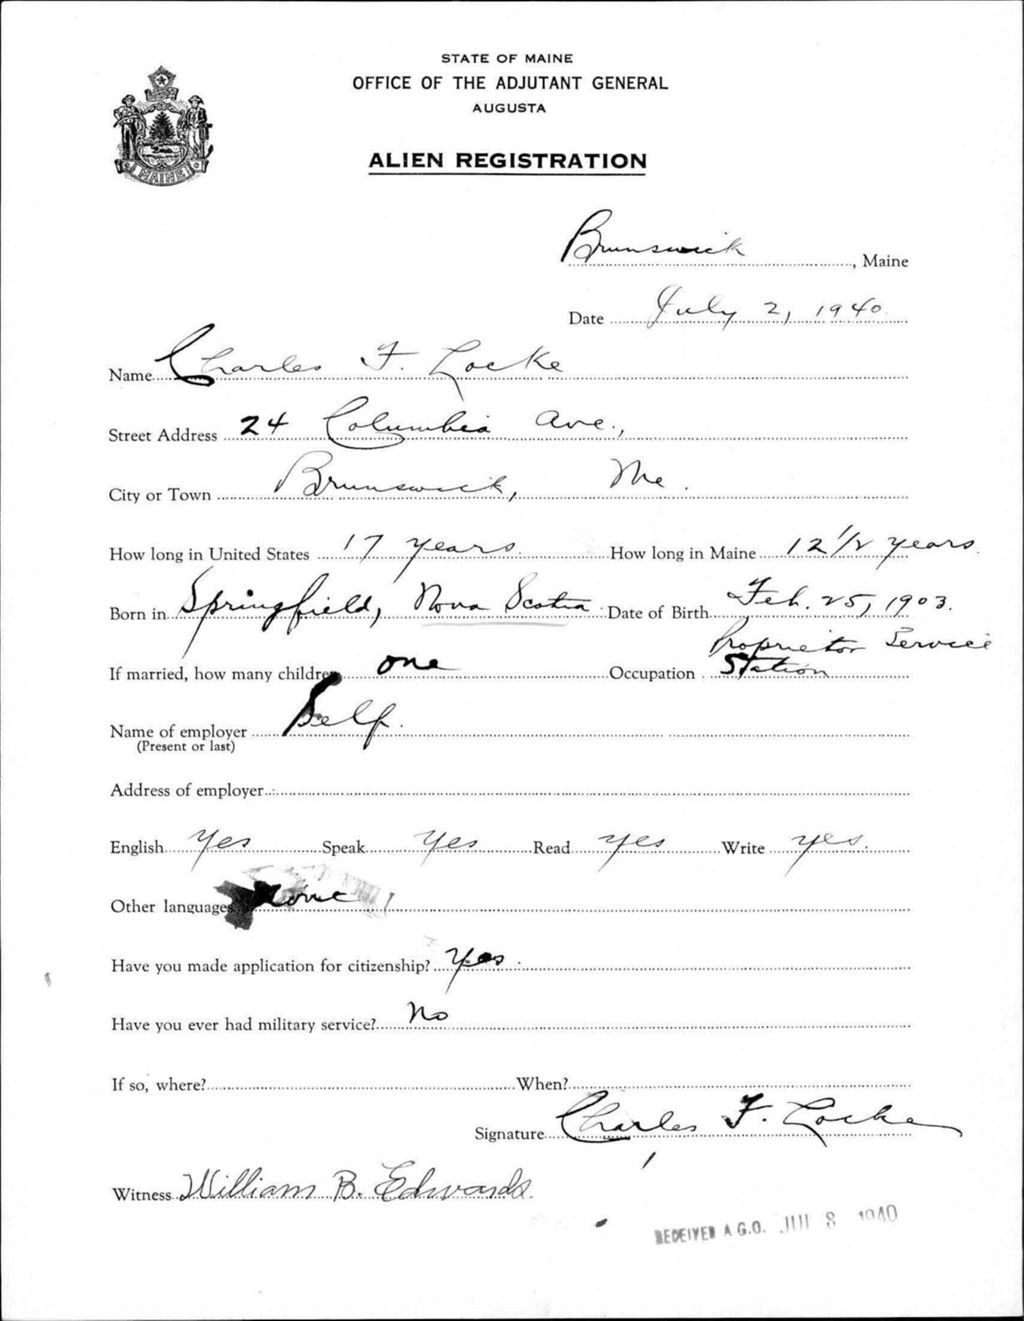 STATE OF MAINE
OFFICE OF THE ADJUTANT GENERAL
AUGUSTA
ALIEN REGISTRATION
MAINE
Brunswick, Maine
Date July 2, 1940
Name Charles F. Locke
Street Address 24 Columbia Ave.,
City or Town Brunswick, Me.
How long in United States 17 years How long in Maine 12 1/2 years
Born in Springfield, Nova Scotia Date of Birth Feb. 25, 1903.
Proprietor Service
If married, how many children one Occupation Station
Name of employer Self.
(Present or last)
Address of employer
English Yes Speak Yes Read yes Write yes.
Other languages None
Have you made application for citizenship? Yes.
Have you ever had military service? No
If so, where? When?
Signature Charles F. Locke
Witness William B. Edwards
RECEIVED A.G.O. JUL 8 1940